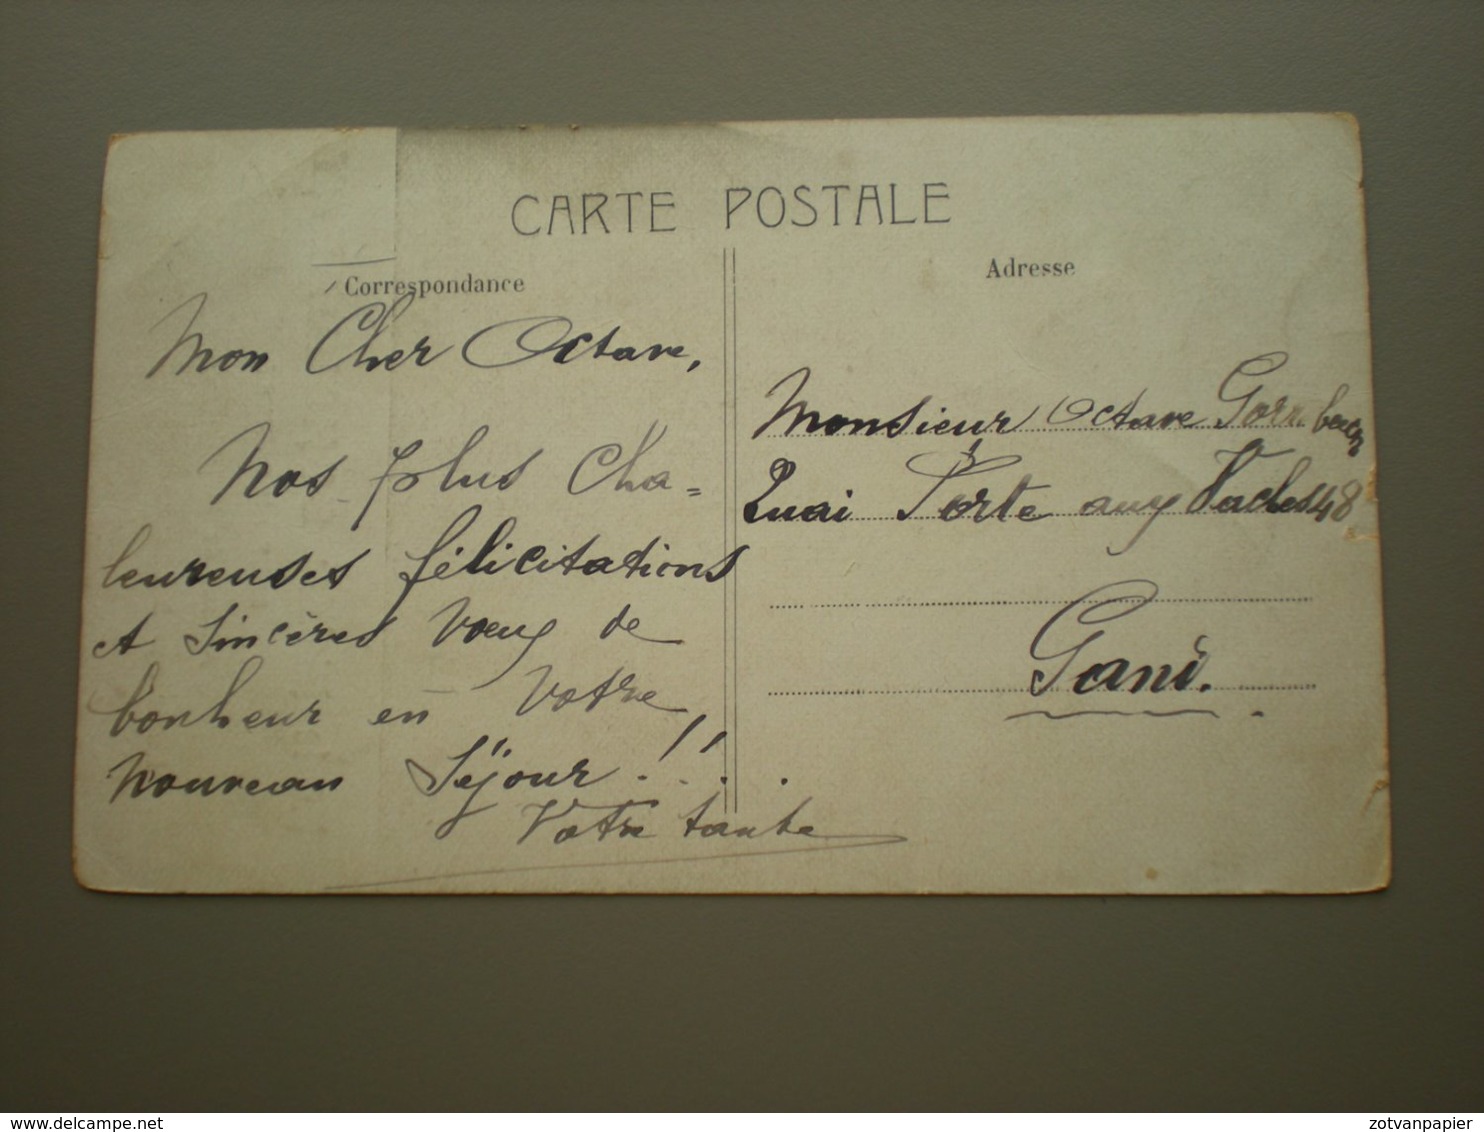 CARTE POSTALE
Correspondance
Adresse
Mon Cher Octave,
Nos plus cha=
leureuses félicitations
et sincères voeux de
bonheur en votre
nouveau séjour!!..
Votre tante
Monsieur Octave
Quai Porte aux Vaches 48
Gand.
zotvanpapier